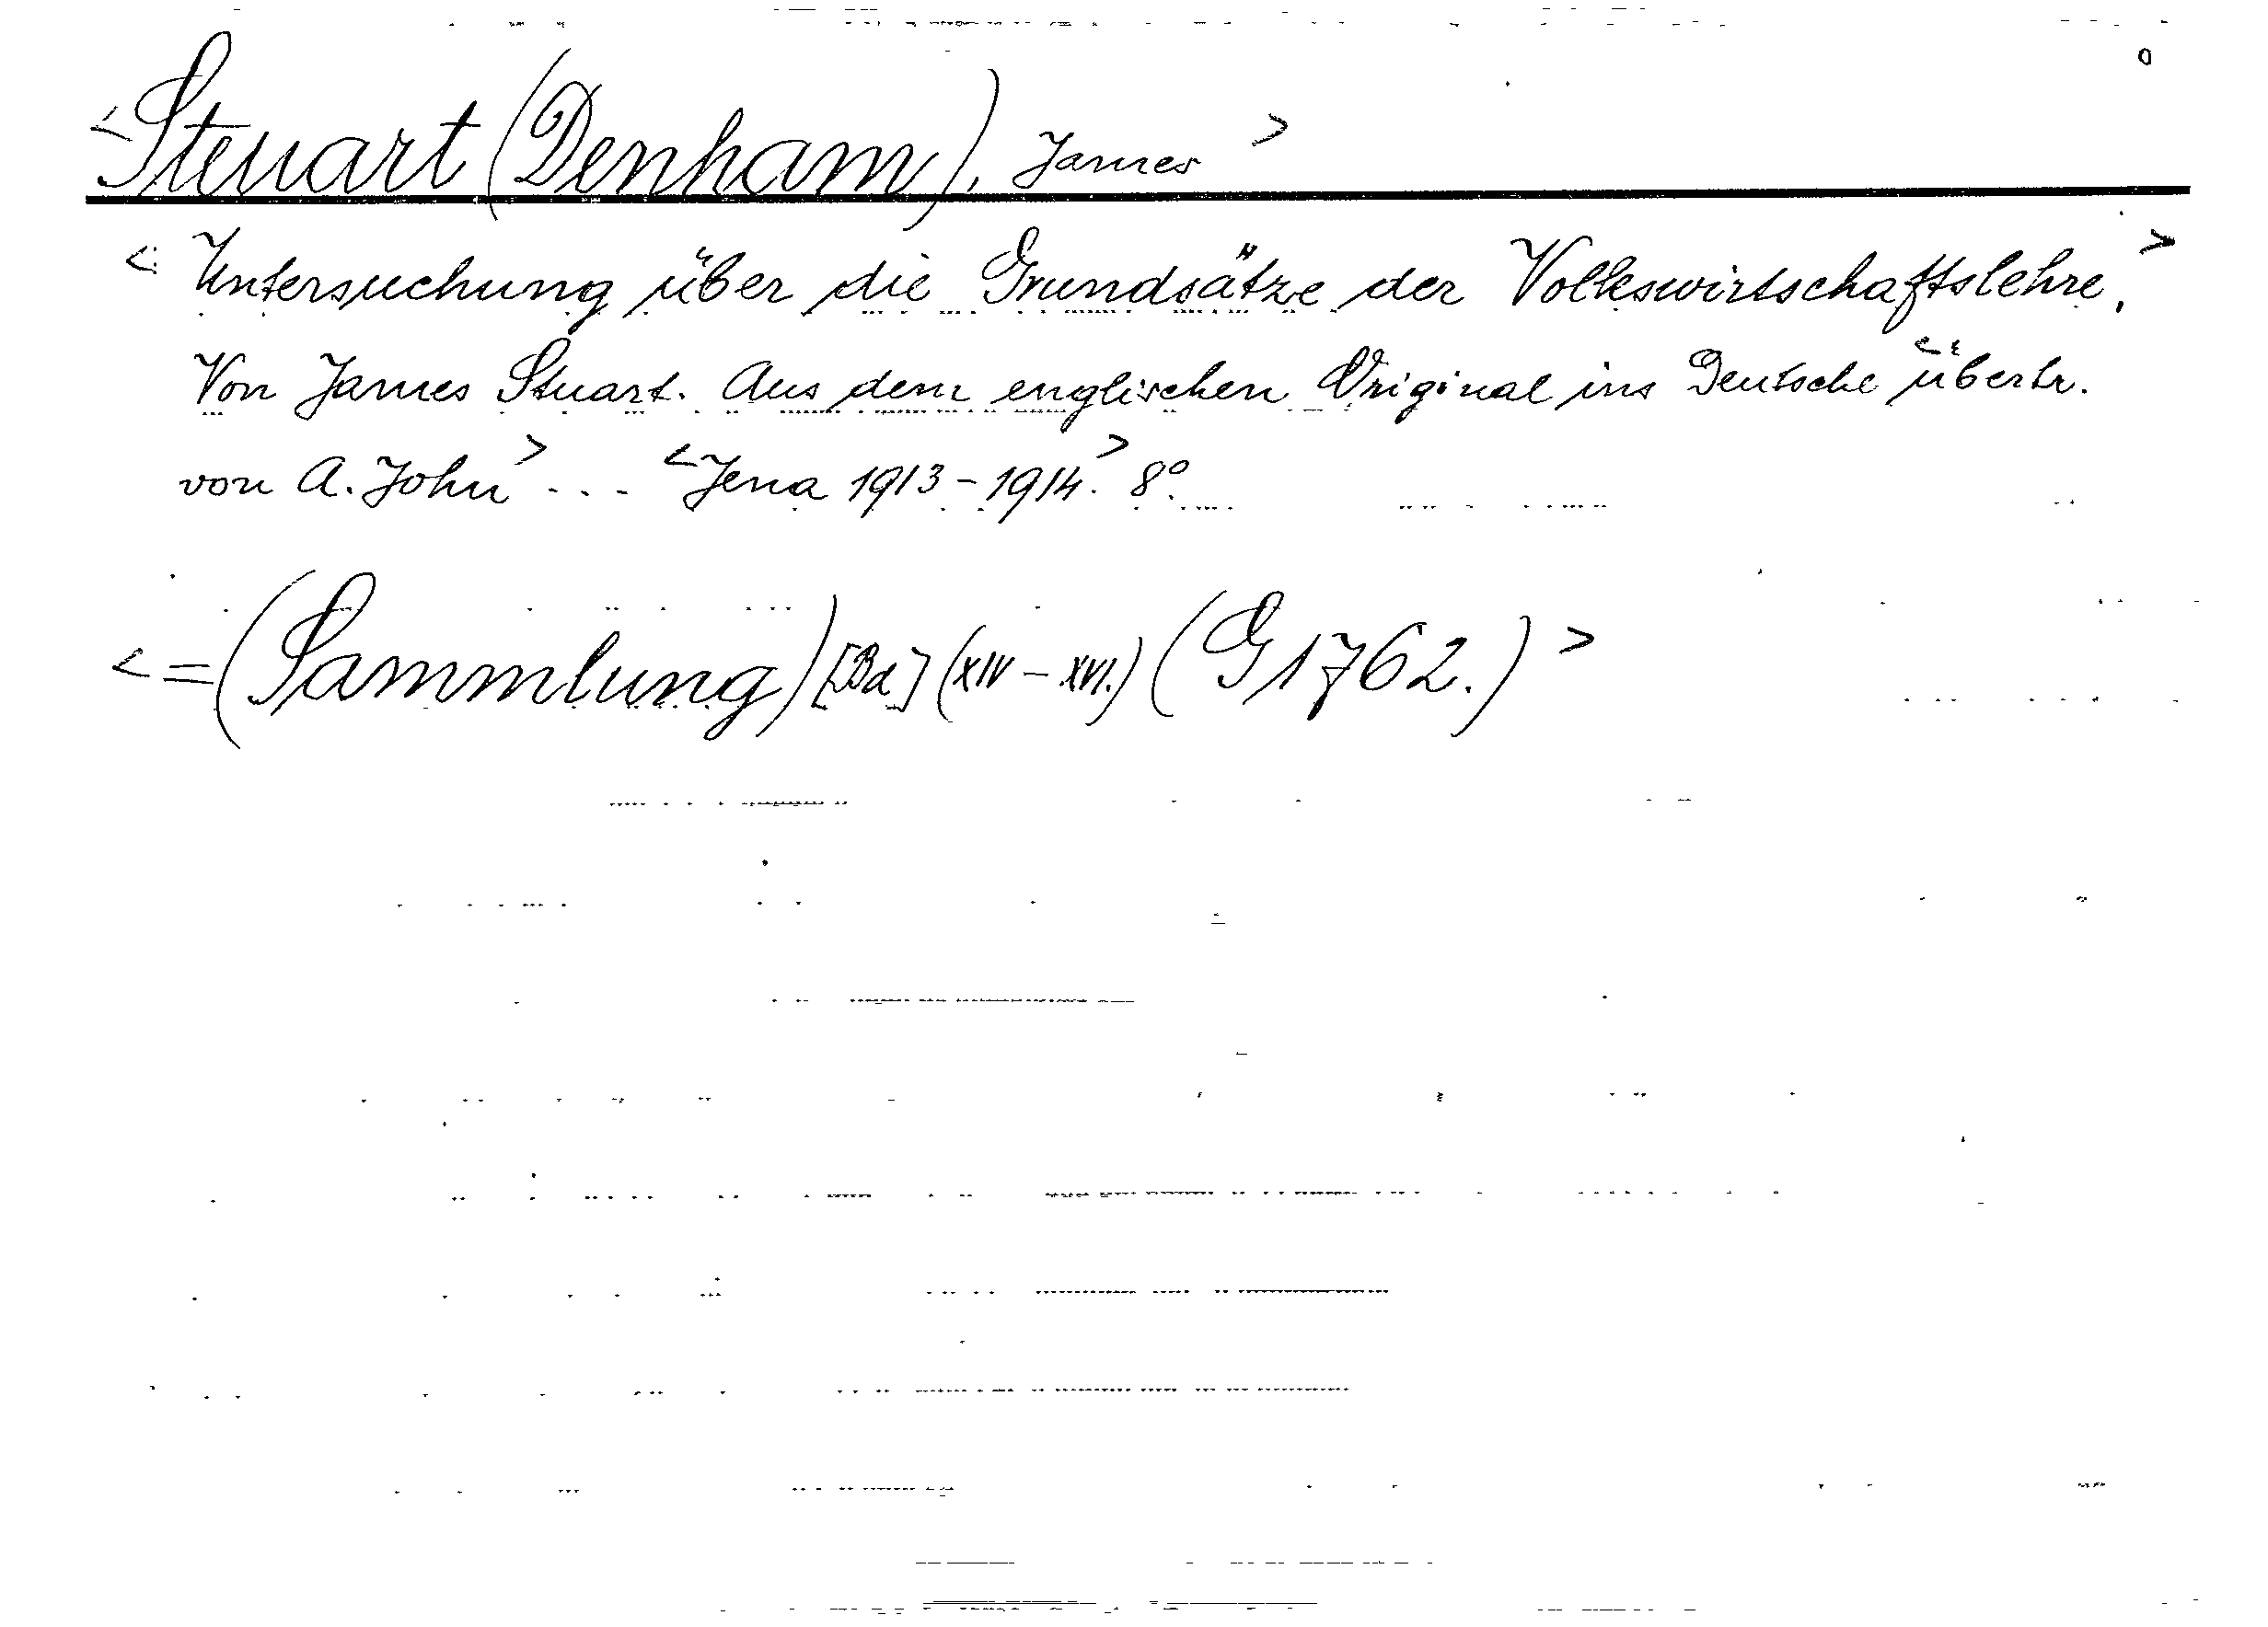 <Steuart (Denham), James>
< Untersuchung über die Grundsätze der Volkswirtschaftslehre.>
Von James Stuart. Aus dem englischen Original ins Deutsche <übertr.
von A. John> ... <Jena 1913-1914.> 8°.
< = (Sammlung) [Bd] (XIV-XVI.) (G 1762.) >